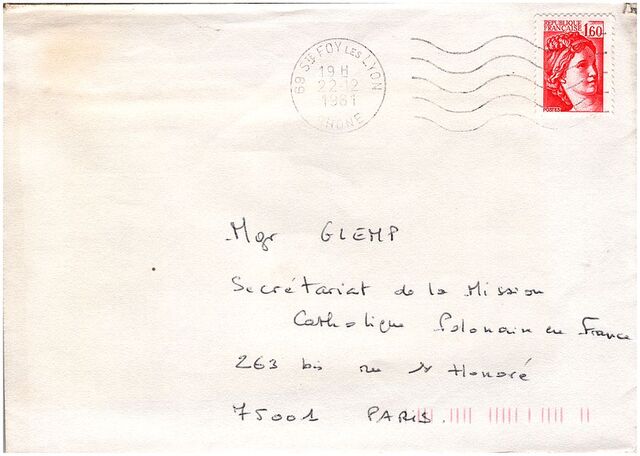 RÉPUBLIQUE
FRANÇAISE
1,60
POSTES
69 STE FOY LES LYON
19 H
22-12
1981
RHONE
Mgr GLEMP
Secrétariat de la Mission
Catholique Polonaise en France
263 bis rue St Honoré
75001 PARIS.